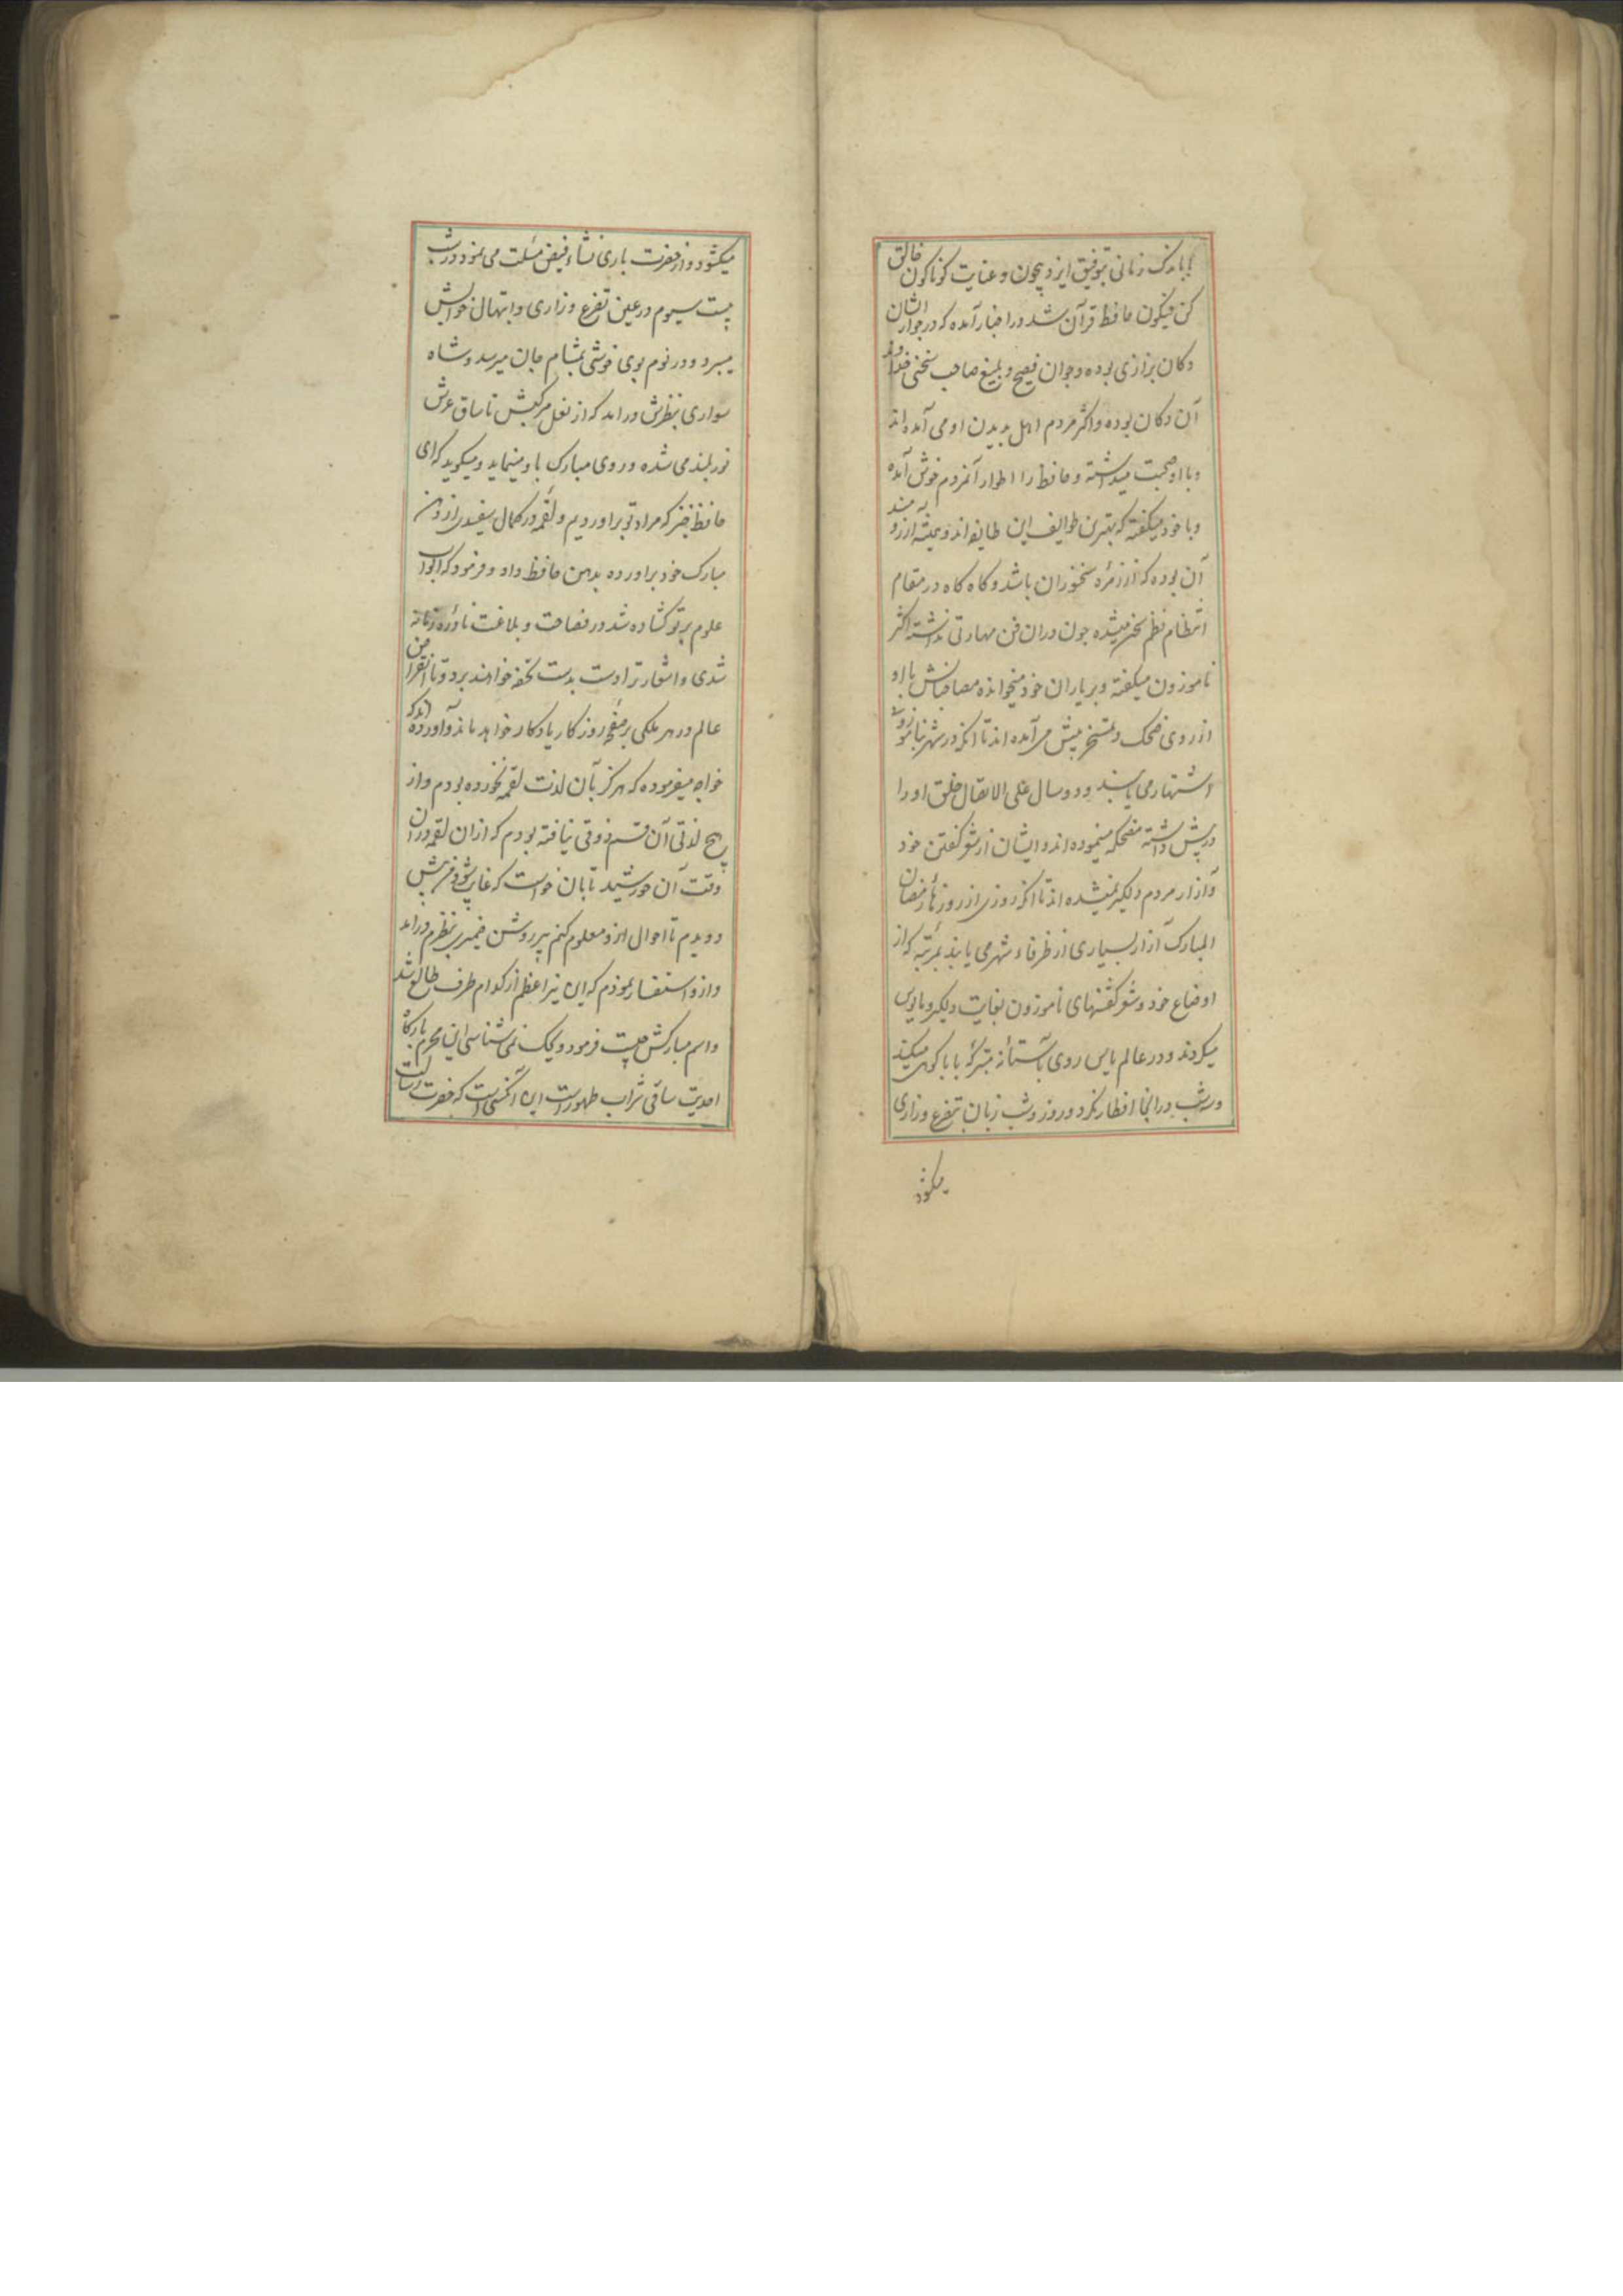 باندک زمانی بتوفیق ایزد بیچون و عنایت کوناکون خالق
کن فیکون حافظ قرآن شد در اخبار آمده که در جوار ایشان
دکان بزازی بوده و جوان فصیح و بلیغ صاحب سخنی خداوند
آن دکان بوده و اکثر مردم اهل بدیدن او می آمده اند
و با او صحبت میداشته و حافظ را اطوار آنمردم خوش آمده
و با خود میکفته که بهترین طوایف این طایفه اند و همیشه آرزومند
آن بوده که از زمره سخنوران باشد و کاه کاه در مقام
انتظام نظم سخن میشده چون دران فن مهارتی نداشته اکثر
ناموزون میکفته و بر یاران خود میخوانده مصاحبانش با او
از روی ضحک و تمسخر پیش می آمده اند تا آنکه در شهر بناموزونی
اشتهار می یابند و دو سال علی الاتصال خلق او را
در پیش داشته مضحکه مینموده اند و ایشان از شعر کفتن خود
و آزار مردم دلکیر نمیشده اند تا آنکه روزی از روزهاء رمضان
المبارک آزار بسیاری از ظرفاء شهر می یابند بمرتبه که از
اوضاع خود و شعر کفتنهای ناموزون بغایت دلکیر و مایوس
میکردند و در عالم یاس روی بآستانه متبرکه بابا کوهی میکنند
و سه شب در انجا افطار نکرد و روز و شب زبان بتضرع و زاری
میکشود
میکشود و از حضرت باری نشاء فیض مسئلت می نمود در شب
بیست سیوم در عین تضرع و زاری و ابتهال خوابش
میبرد و در نوم بوی خوشی بمشام جان میرسد و شاه
سواری بنظرش در امد که از نعل مرکبش تا ساق عرش
نور بلند می شده و روی مبارک باو مینماید و میکوید که ای
حافظ خیز که مراد تو بر اوردیم و لقمه در کمال سفیدی از دهن
مبارک خود بر اورده بدهن حافظ داد و فرمود که ابواب
علوم بر تو کشاده شد در فصاحت و بلاغت نادره زمانه
شدی و اشعار ترا دست بدست تحفه خواهند برد و تا انقراض
عالم در هر ملکی بر صفحه روزکار یادکار خواهد ماند و آورده اند که
خواجه میفرموده که هرکز بآن لذت لقمه نخورده بودم و از
هیچ لذتی آن قسم ذوقی نیافته بودم که از ان لقمه در ان
وقت آن خورشید تابان خواست که غایب شود من پیش
دویدم تا احوال ازو معلوم کنم پیر روشن ضمیری بنظرم در امد
و ازو استفسار نمودم که این نیر اعظم از کدام طرف طالع شد
و اسم مبارکش چیست فرمود ویحک نمی شناسی این محرم بارکاه
احدیت ساقی شراب طهور است این آنکسی است که حضرت رسالت